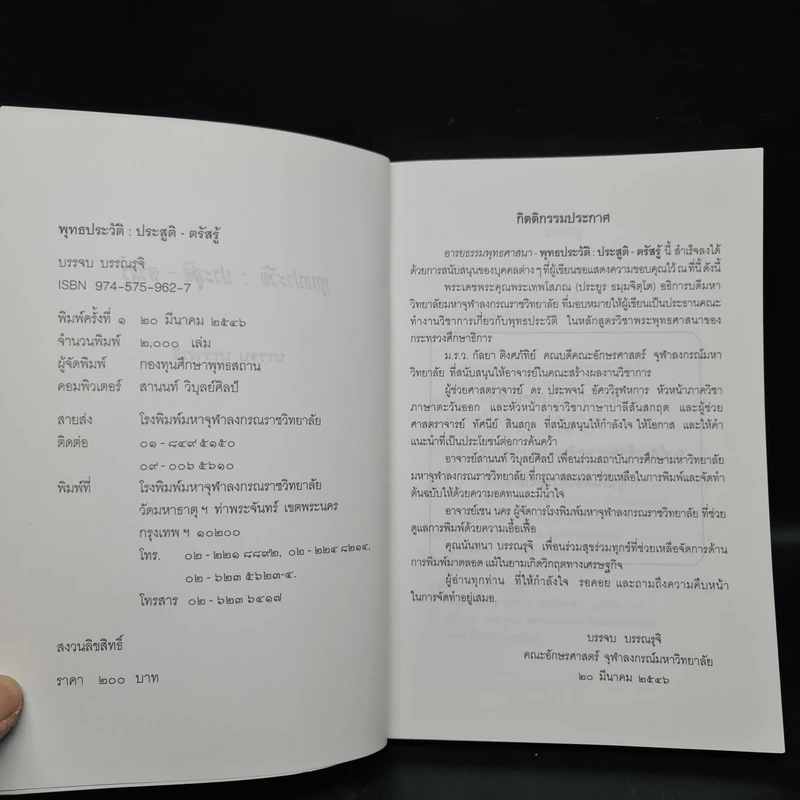 พุทธประวัติ : ประสูติ - ตรัสรู้
บรรจบ บรรณรุจิ
ISBN 974-575-962-7
พิมพ์ครั้งที่ ๑ ๒๐ มีนาคม ๒๕๔๖
จำนวนพิมพ์ ๒,๐๐๐ เล่ม
ผู้จัดพิมพ์ กองทุนศึกษาพุทธสถาน
คอมพิวเตอร์ สานนท์ วิบุลย์ศิลป์
สายส่ง โรงพิมพ์มหาจุฬาลงกรณราชวิทยาลัย
ติดต่อ ๐๑ - ๘๔๙ ๕๑๕๐
๐๙ - ๐๐๖ ๕๖๑๐
พิมพ์ที่ โรงพิมพ์มหาจุฬาลงกรณราชวิทยาลัย
วัดมหาธาตุ ฯ ท่าพระจันทร์ เขตพระนคร
กรุงเทพ ฯ ๑๐๒๐๐
โทร. ๐๒ - ๒๒๑ ๘๘๙๒, ๐๒ - ๒๒๔ ๘๒๑๔,
๐๒ - ๖๒๓ ๕๖๒๓-๔.
โทรสาร ๐๒ - ๖๒๓ ๖๔๑๗
สงวนลิขสิทธิ์
ราคา ๒๐๐ บาท
กิตติกรรมประกาศ
อารยธรรมพุทธศาสนา - พุทธประวัติ : ประสูติ - ตรัสรู้ นี้ สำเร็จลงได้
ด้วยการสนับสนุนของบุคคลต่าง ๆ ที่ผู้เขียนขอแสดงความขอบคุณไว้ ณ ที่นี้ ดังนี้
พระเดชพระคุณพระเทพโสภณ (ประยูร ธมฺมจิตฺโต) อธิการบดีมหา
วิทยาลัยมหาจุฬาลงกรณราชวิทยาลัย ที่มอบหมายให้ผู้เขียนเป็นประธานคณะ
ทำงานวิชาการเกี่ยวกับพุทธประวัติ ในหลักสูตรวิชาพระพุทธศาสนาของ
กระทรวงศึกษาธิการ
ม.ร.ว. กัลยา ติงศภัทิย์ คณบดีคณะอักษรศาสตร์ จุฬาลงกรณ์มหา
วิทยาลัย ที่สนับสนุนให้อาจารย์ในคณะสร้างผลงานวิชาการ
ผู้ช่วยศาสตราจารย์ ดร. ประพจน์ อัศววิรุฬหการ หัวหน้าภาควิชา
ภาษาตะวันออก และหัวหน้าสาขาวิชาภาษาบาลีสันสกฤต และผู้ช่วย
ศาสตราจารย์ ทัศนีย์ สินสกุล ที่สนับสนุนให้กำลังใจ ให้โอกาส และให้คำ
แนะนำที่เป็นประโยชน์ต่อการค้นคว้า
อาจารย์สานนท์ วิบุลย์ศิลป์ เพื่อนร่วมสถาบันการศึกษามหาวิทยาลัย
มหาจุฬาลงกรณราชวิทยาลัย ที่กรุณาสละเวลาช่วยเหลือในการพิมพ์และจัดทำ
ต้นฉบับให้ด้วยความอดทนและมีน้ำใจ
อาจารย์เชน นคร ผู้จัดการโรงพิมพ์มหาจุฬาลงกรณราชวิทยาลัย ที่ช่วย
ดูแลการพิมพ์ด้วยความเอื้อเฟื้อ
คุณนันทนา บรรณรุจิ เพื่อนร่วมสุขร่วมทุกข์ที่ช่วยเหลือจัดการด้าน
การพิมพ์มาตลอด แม้ในยามเกิดวิกฤตทางเศรษฐกิจ
ผู้อ่านทุกท่าน ที่ให้กำลังใจ รอคอย และถามถึงความคืบหน้า
ในการจัดทำอยู่เสมอ.
บรรจบ บรรณรุจิ
คณะอักษรศาสตร์ จุฬาลงกรณ์มหาวิทยาลัย
๒๐ มีนาคม ๒๕๔๖